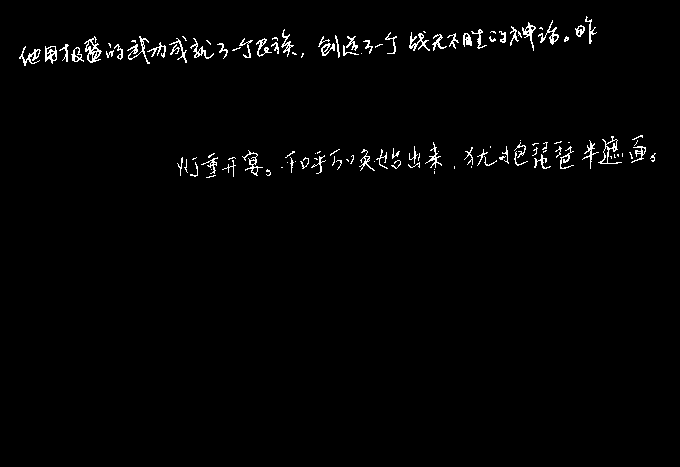 他用极盛的武功成就了一个民族，创造了一个战无不胜的神话。昨
灯重开宴。千呼万唤始出来，犹抱琵琶半遮面。